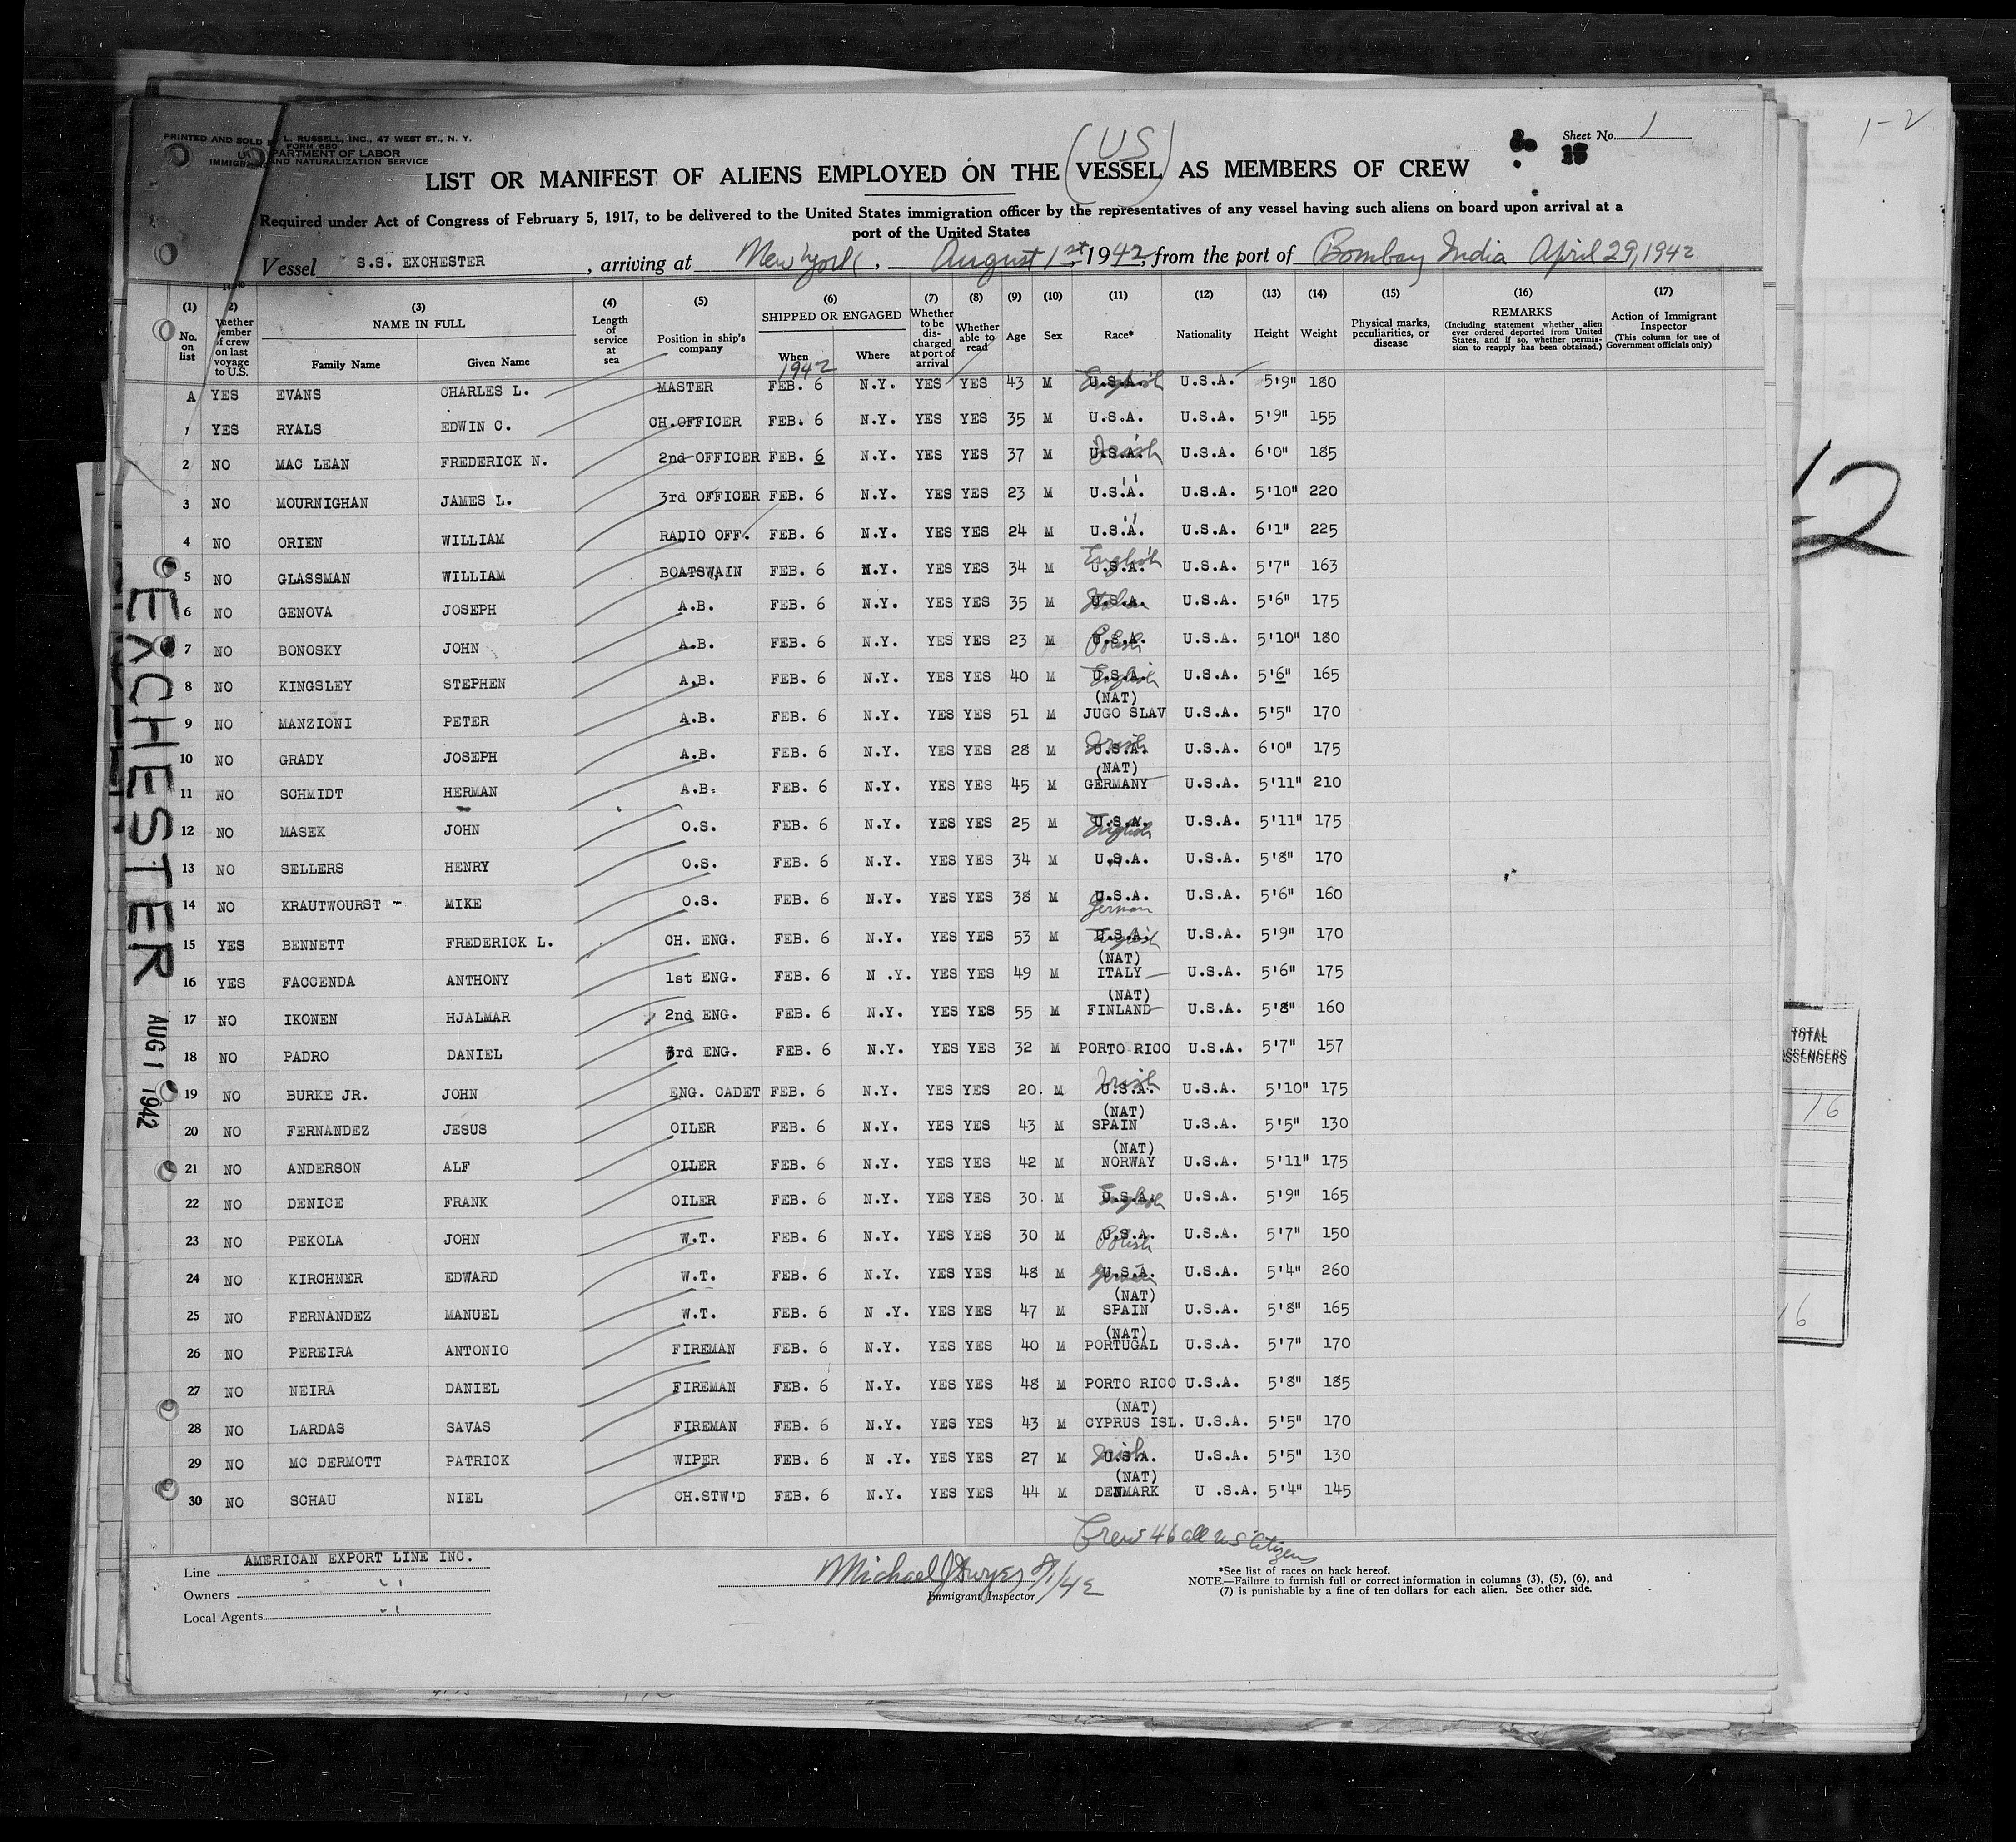 PRINTED AND SOLD L. RUSSELL, INC., 47 WEST ST., N. Y.
FORM 680
DEPARTMENT OF LABOR
IMMIGRATION AND NATURALIZATION SERVICE
Sheet No. 1
1-2
(US)
LIST OR MANIFEST OF ALIENS EMPLOYED ON THE VESSEL AS MEMBERS OF CREW
Required under Act of Congress of February 5, 1917, to be delivered to the United States immigration officer by the representatives of any vessel having such aliens on board upon arrival at a
port of the United States
Vessel S.S. EXCHESTER, arriving at New York, August 1st, 1942, from the port of Bombay India April 29, 1942
(1) No. on list (2) Whether member of crew on last voyage to U.S. (3) NAME IN FULL Family Name Given Name (4) Length of service at sea (5) Position in ship's company (6) SHIPPED OR ENGAGED When 1942 Where (7) Whether to be discharged at port of arrival (8) Whether able to read (9) Age (10) Sex (11) Race* (12) Nationality (13) Height (14) Weight (15) Physical marks, peculiarities, or disease (16) REMARKS (Including statement whether alien ever ordered deported from United States, and if so, whether permission to reapply has been obtained.) (17) Action of Immigrant Inspector (This column for use of Government officials only)
A YES EVANS CHARLES L. MASTER FEB. 6 N.Y. YES YES 43 M U.S.A. English U.S.A. 5'9" 180
1 YES RYALS EDWIN C. CH.OFFICER FEB. 6 N.Y. YES YES 35 M U.S.A. U.S.A. 5'9" 155
2 NO MAC LEAN FREDERICK N. 2nd OFFICER FEB. 6 N.Y. YES YES 37 M U.S.A. U.S.A. 6'0" 185
3 NO MOURNIGHAN JAMES L. 3rd OFFICER FEB. 6 N.Y. YES YES 23 M U.S.A. U.S.A. 5'10" 220
4 NO ORIEN WILLIAM RADIO OFF. FEB. 6 N.Y. YES YES 24 M U.S.A. U.S.A. 6'1" 225
5 NO GLASSMAN WILLIAM BOATSWAIN FEB. 6 N.Y. YES YES 34 M U.S.A. English U.S.A. 5'7" 163
6 NO GENOVA JOSEPH A.B. FEB. 6 N.Y. YES YES 35 M U.S.A. U.S.A. 5'6" 175
7 NO BONOSKY JOHN A.B. FEB. 6 N.Y. YES YES 23 M U.S.A. Polish U.S.A. 5'10" 180
8 NO KINGSLEY STEPHEN A.B. FEB. 6 N.Y. YES YES 40 M U.S.A. English U.S.A. 5'6" 165
9 NO MANZIONI PETER A.B. FEB. 6 N.Y. YES YES 51 M (NAT) JUGO SLAV U.S.A. 5'5" 170
10 NO GRADY JOSEPH A.B. FEB. 6 N.Y. YES YES 28 M U.S.A. Irish U.S.A. 6'0" 175
11 NO SCHMIDT HERMAN A.B. FEB. 6 N.Y. YES YES 45 M (NAT) GERMANY U.S.A. 5'11" 210
12 NO MASEK JOHN O.S. FEB. 6 N.Y. YES YES 25 M U.S.A. English U.S.A. 5'11" 175
13 NO SELLERS HENRY O.S. FEB. 6 N.Y. YES YES 34 M U.S.A. U.S.A. 5'8" 170
14 NO KRAUTWOURST - MIKE O.S. FEB. 6 N.Y. YES YES 38 M U.S.A. German U.S.A. 5'6" 160
15 YES BENNETT FREDERICK L. CH. ENG. FEB. 6 N.Y. YES YES 53 M U.S.A. English U.S.A. 5'9" 170
16 YES FACCENDA ANTHONY 1st ENG. FEB. 6 N .Y. YES YES 49 M (NAT) ITALY U.S.A. 5'6" 175
17 NO IKONEN HJALMAR 2nd ENG. FEB. 6 N.Y. YES YES 55 M (NAT) FINLAND U.S.A. 5'8" 160
18 NO PADRO DANIEL 3rd ENG. FEB. 6 N.Y. YES YES 32 M PORTO RICO U.S.A. 5'7" 157
19 NO BURKE JR. JOHN ENG. CADET FEB. 6 N.Y. YES YES 20. M U.S.A. Irish U.S.A. 5'10" 175
20 NO FERNANDEZ JESUS OILER FEB. 6 N.Y. YES YES 43 M (NAT) SPAIN U.S.A. 5'5" 130
21 NO ANDERSON ALF OILER FEB. 6 N.Y. YES YES 42 M (NAT) NORWAY U.S.A. 5'11" 175
22 NO DENICE FRANK OILER FEB. 6 N.Y. YES YES 30. M U.S.A. English U.S.A. 5'9" 165
23 NO PEKOLA JOHN W.T. FEB. 6 N.Y. YES YES 30 M U.S.A. Polish U.S.A. 5'7" 150
24 NO KIRCHNER EDWARD W.T. FEB. 6 N.Y. YES YES 48 M U.S.A. German U.S.A. 5'4" 260
25 NO FERNANDEZ MANUEL W.T. FEB. 6 N .Y. YES YES 47 M (NAT) SPAIN U.S.A. 5'8" 165
26 NO PEREIRA ANTONIO FIREMAN FEB. 6 N.Y. YES YES 40 M (NAT) PORTUGAL U.S.A. 5'7" 170
27 NO NEIRA DANIEL FIREMAN FEB. 6 N.Y. YES YES 48 M PORTO RICO U.S.A. 5'8" 185
28 NO LARDAS SAVAS FIREMAN FEB. 6 N.Y. YES YES 43 M (NAT) CYPRUS ISL. U.S.A. 5'5" 170
29 NO MC DERMOTT PATRICK WIPER FEB. 6 N .Y. YES YES 27 M U.S.A. Irish U.S.A. 5'5" 130
30 NO SCHAU NIEL CH.STW'D FEB. 6 N.Y. YES YES 44 M (NAT) DENMARK U .S.A. 5'4" 145
EXCHESTER
AUG 1 1942
Crew 46 all US Citizens
Line AMERICAN EXPORT LINE INC.
Owners " "
Local Agents " "
Michael J Dwyer 8/1/42
Immigrant Inspector
*See list of races on back hereof.
NOTE.—Failure to furnish full or correct information in columns (3), (5), (6), and
(7) is punishable by a fine of ten dollars for each alien. See other side.
TOTAL
PASSENGERS
16
16